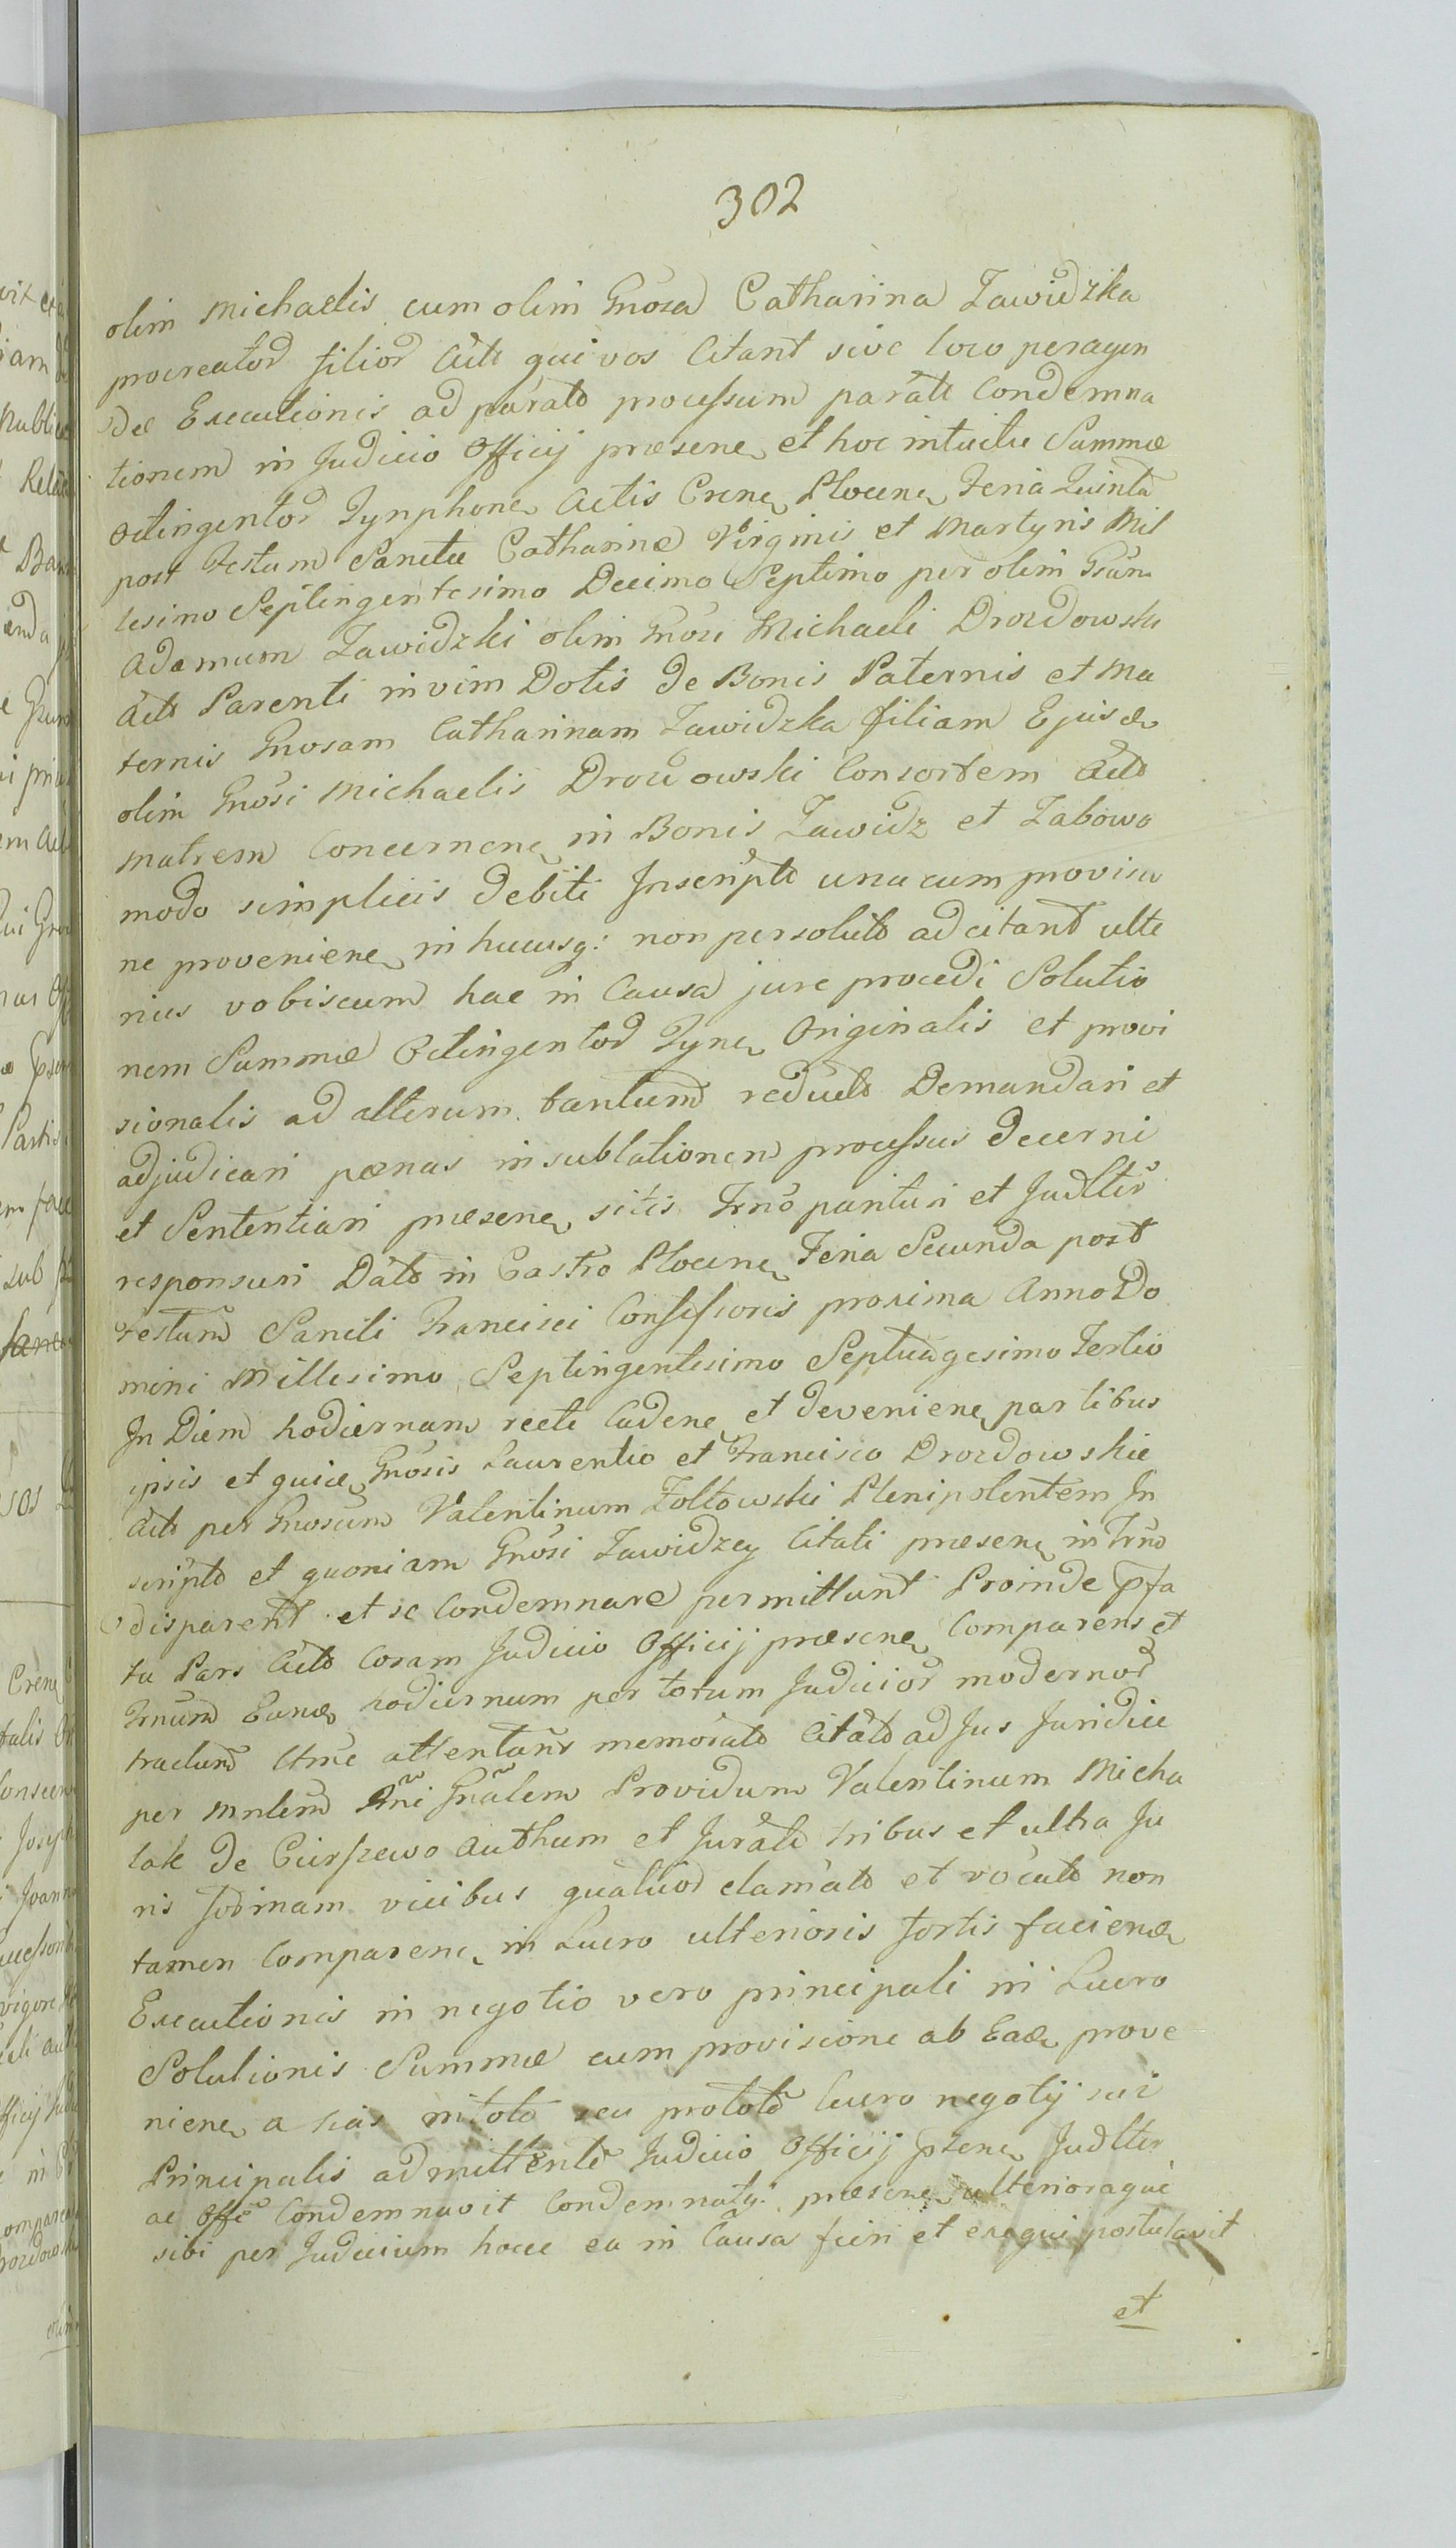 302
olim Michaelis cum olim Gnosa Catharina Zawidzka
procreator filior Act qui vos Citant sive loco peragen
dae Executionis ad parato processum parati Condemna
tionem in Judicio Officij praesen et hoc intuitu Summae
Octingentor Tynphon Actis Cren Plocen Feria Quinta
post Festum Sanctae Catharinae Virginis et Martyris Mil
lesimo Septingentesimo Decimo Septimo per olim Gsum
Adamum Zawidzki olim Gnosi Michaeli Drozdowski
Act Parenti in vim Dotis de Bonis Paternis et Ma
ternis Gnosam Catharinam Zawidzka filiam Ejusd
olim Gnosi Michaelis Drozdowski Consortem Act
Matrem Concernen in Bonis Zawidz et Zabowo
modo simplicis debiti Inscripto una cum provisio
ne provenien in hucusq: non persoluto ad citant ulte
rius vobiscum hac in Causa jure procedi Solutio
nem Summae Octingentor Tyn Originalis et provi
sionalis ad alterum tantum reduct Demandari et
adjudicari poenas in sublationem processus decerni
et Sententiari praesen sitis Trno parituri et Judltr
responsuri Dato in Castro Plocen Feria Secunda post
Festum Sancti Francisci Confessoris proxima Anno Do
mini Millesimo Septingentesimo Septuagesimo Tertio
In Diem hodiernam recte Caden et devenien partibus
ipsis et quid Gnosis Laurentio et Francisco Drozdowskie
Act per Gnosum Valentinum Zoltowski Plenipotentem In
scripto et quoniam Gnosi Zawidzcy Citati praesen in Trno
disparent et se Condemnare permittunt Proinde pfa
ta Pars Act Coram Judicio Officij praesen Comparens et
Trnum Eund hodiernum per totum Judicior modernor
tractum Ctme attentans memorato Citato ad Jus Juridice
per Mntem Rni Gnalem Providum Valentinum Micha
lak de Cierszewo Authum et Jurati tribus et ultra Ju
ris formam vicibus quatuor clamato et vocato non
tamen Comparen in Lucro ulterioris fortis faciend
Executionis in negotio vero principali in Lucro
Solutionis Summae cum provisione ab Ead prove
nien a hias in toto seu pro toto lucro negotij sui
Principalis admittente Judicio Officij psen Judlter
ac Offe Condemnavit Condemnatq: praesen ulterioraque
sibi per Judicium hocce ea in Causa fieri et exequi postulavit
et